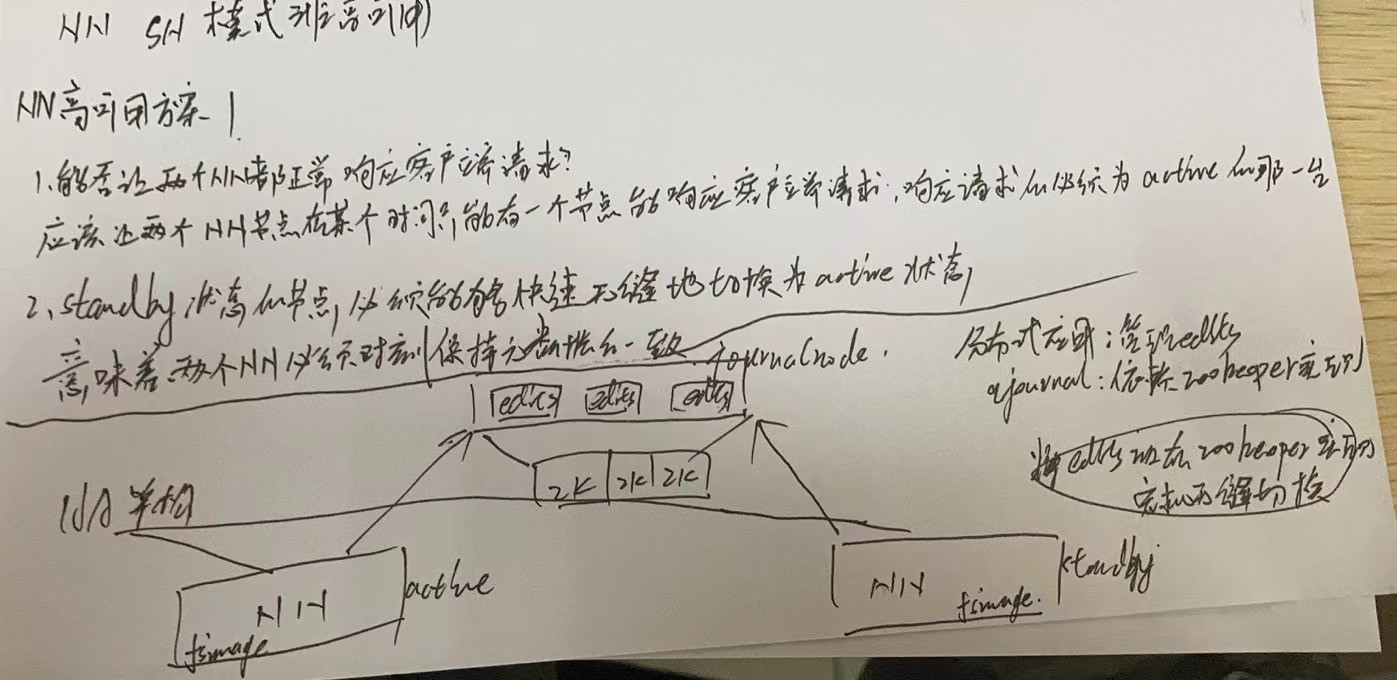 NN SN 模式非高可用
NN高可用方案 1
1、能否让两个NN都正常响应客户端请求?
应该让两个NN节点在某个时间只能有一个节点能响应客户端请求,响应请求的必须为active的那一台
2、standby状态的节点,必须能够快速无缝地切换为active状态,
意味着两个NN必须时刻保持元数据的一致
journalnode.
分布式应用:管理edits
qjournal:依赖zookeeper实现
edits edits edits
将edits放在zookeeper实现
宕机无缝切换
zk zk zk
HA
active
standby
NN
fsimage
NN
fsimage.